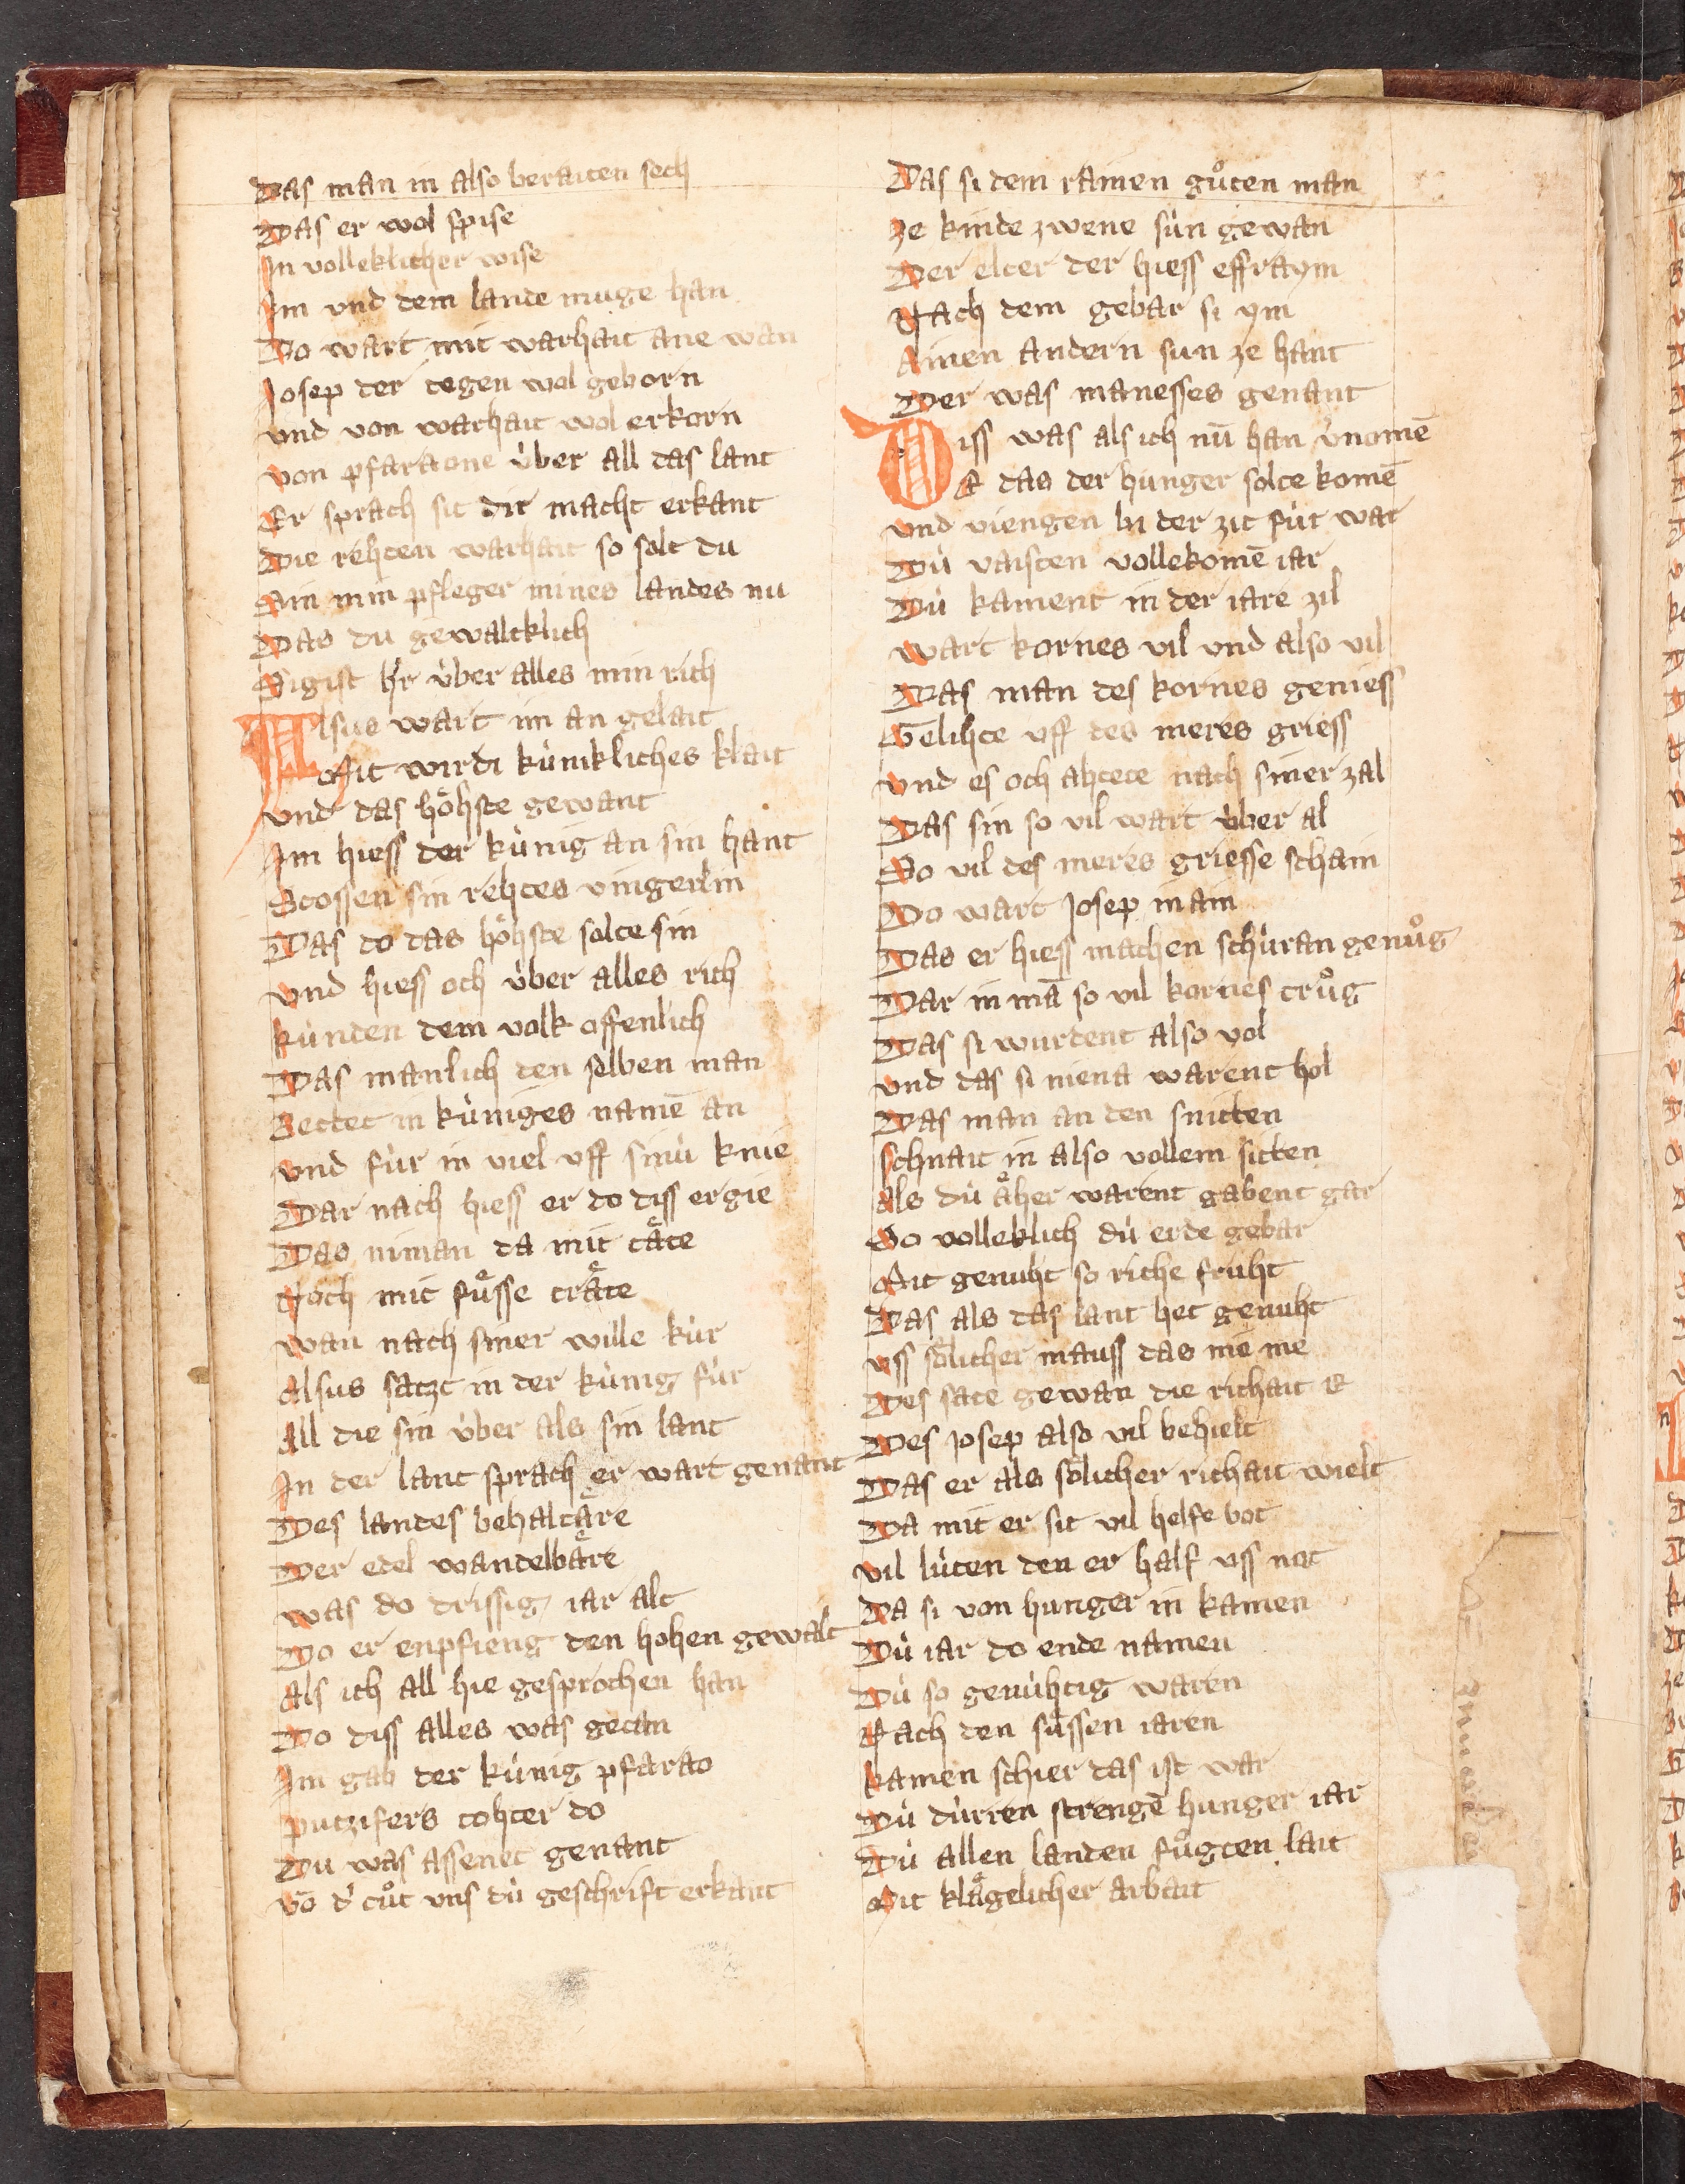 Das man in also beraiten sech
Das er wol spise
In volleklicher wise
Im vnd dem lande muge han
Do wart mit warhait ane wan
Josep der tegen wol geborn
vnd von warhait wol erkorn
von pfaraone úber all das lant
Er sprach sit dir macht erkant
Die rehten warhait so solt du
Ain min pfleger mines landes nu
Das du gewalteklich
Sigist hr úber alles min rich
Alsus wart im an gelait
Mit wirdi kúnikliches klait
vnd das hoͤhste gewant
Im hiess der kúnig an sin hant
Stossen sin rehtes vingerlin
Das do das hoͤhste solte sin
vnd hiess och úber alles rich
kúnden dem volk offenlich
Das manlich den selben man
Bettet in kúniges namē an
vnd fúr in viel vff sinú knie
Dar nach hiess er do diss ergie
Das niman da mit taͤte
Noch mit fuͤsse traͤte
wan nach siner wille kúr
Alsus satzt in der kúnig fúr
All die sin úber als sin lant
In der lant sprach er wart genant
Des landes behaltaͤre
Der edel wandelbaͤre
was do drissig iar alt
Do er enpfieng den hohen gewalt
Als ich all hie gesprochen han
Do diss alles was getan
Im gab der kúnig pfarao
putzifers tohter do
Du was assenet genant
vō d' tuͦt vns dú geschrift erkant
Das si dem rainen guͦten man
ze kinde zwene sún gewan
Der elter der hiess effraym
Nach dem gebar si ym
Ainen andern sun ze hant
Der was manesses genant
Diss was als ich nū han v'nomē
E das der hunger solte komē
vnd viengen bi der zit fúr war
Dú vaisten vollekomē iar
Dú kament in der iare zil
wart kornes vil vnd also vil
Das man des kornes geniess
Gelihte vff des meres griess
vnd es och ahtete nach siner zal
Das sin so vil wart úber al
So vil des meres griesse schain
Do wart Josep in ain
Das er hiess machen schúran genuͦg
Dar in mā so vil kornes truͦg
Das si wurdent also vol
vnd das si niena warent hol
Das man an den snitten
schnait in also vollem sitten
Als dú aͤher warent gabent gar
So volleklich dú erde gebar
Mit genuht so riche fruht
Das als das lant het genuht
vss soͤlicher mauss das nie me
Des sate gewan die richait E
Des Josep also vil behielt
Das er als soͤlicher richait wielt
Da mit er sit vil helfe bot
vil lúten den er half vss not
Da si von hunger in kamen
Dú iar do ende namen
Dú so genúhtig waren
Nach den suͤssen iaren
kamen schier das ist war
Dú dúrren strengē hunger iar
Dú allen landen fuͦgten lait
Mit klaͤgelicher arbait